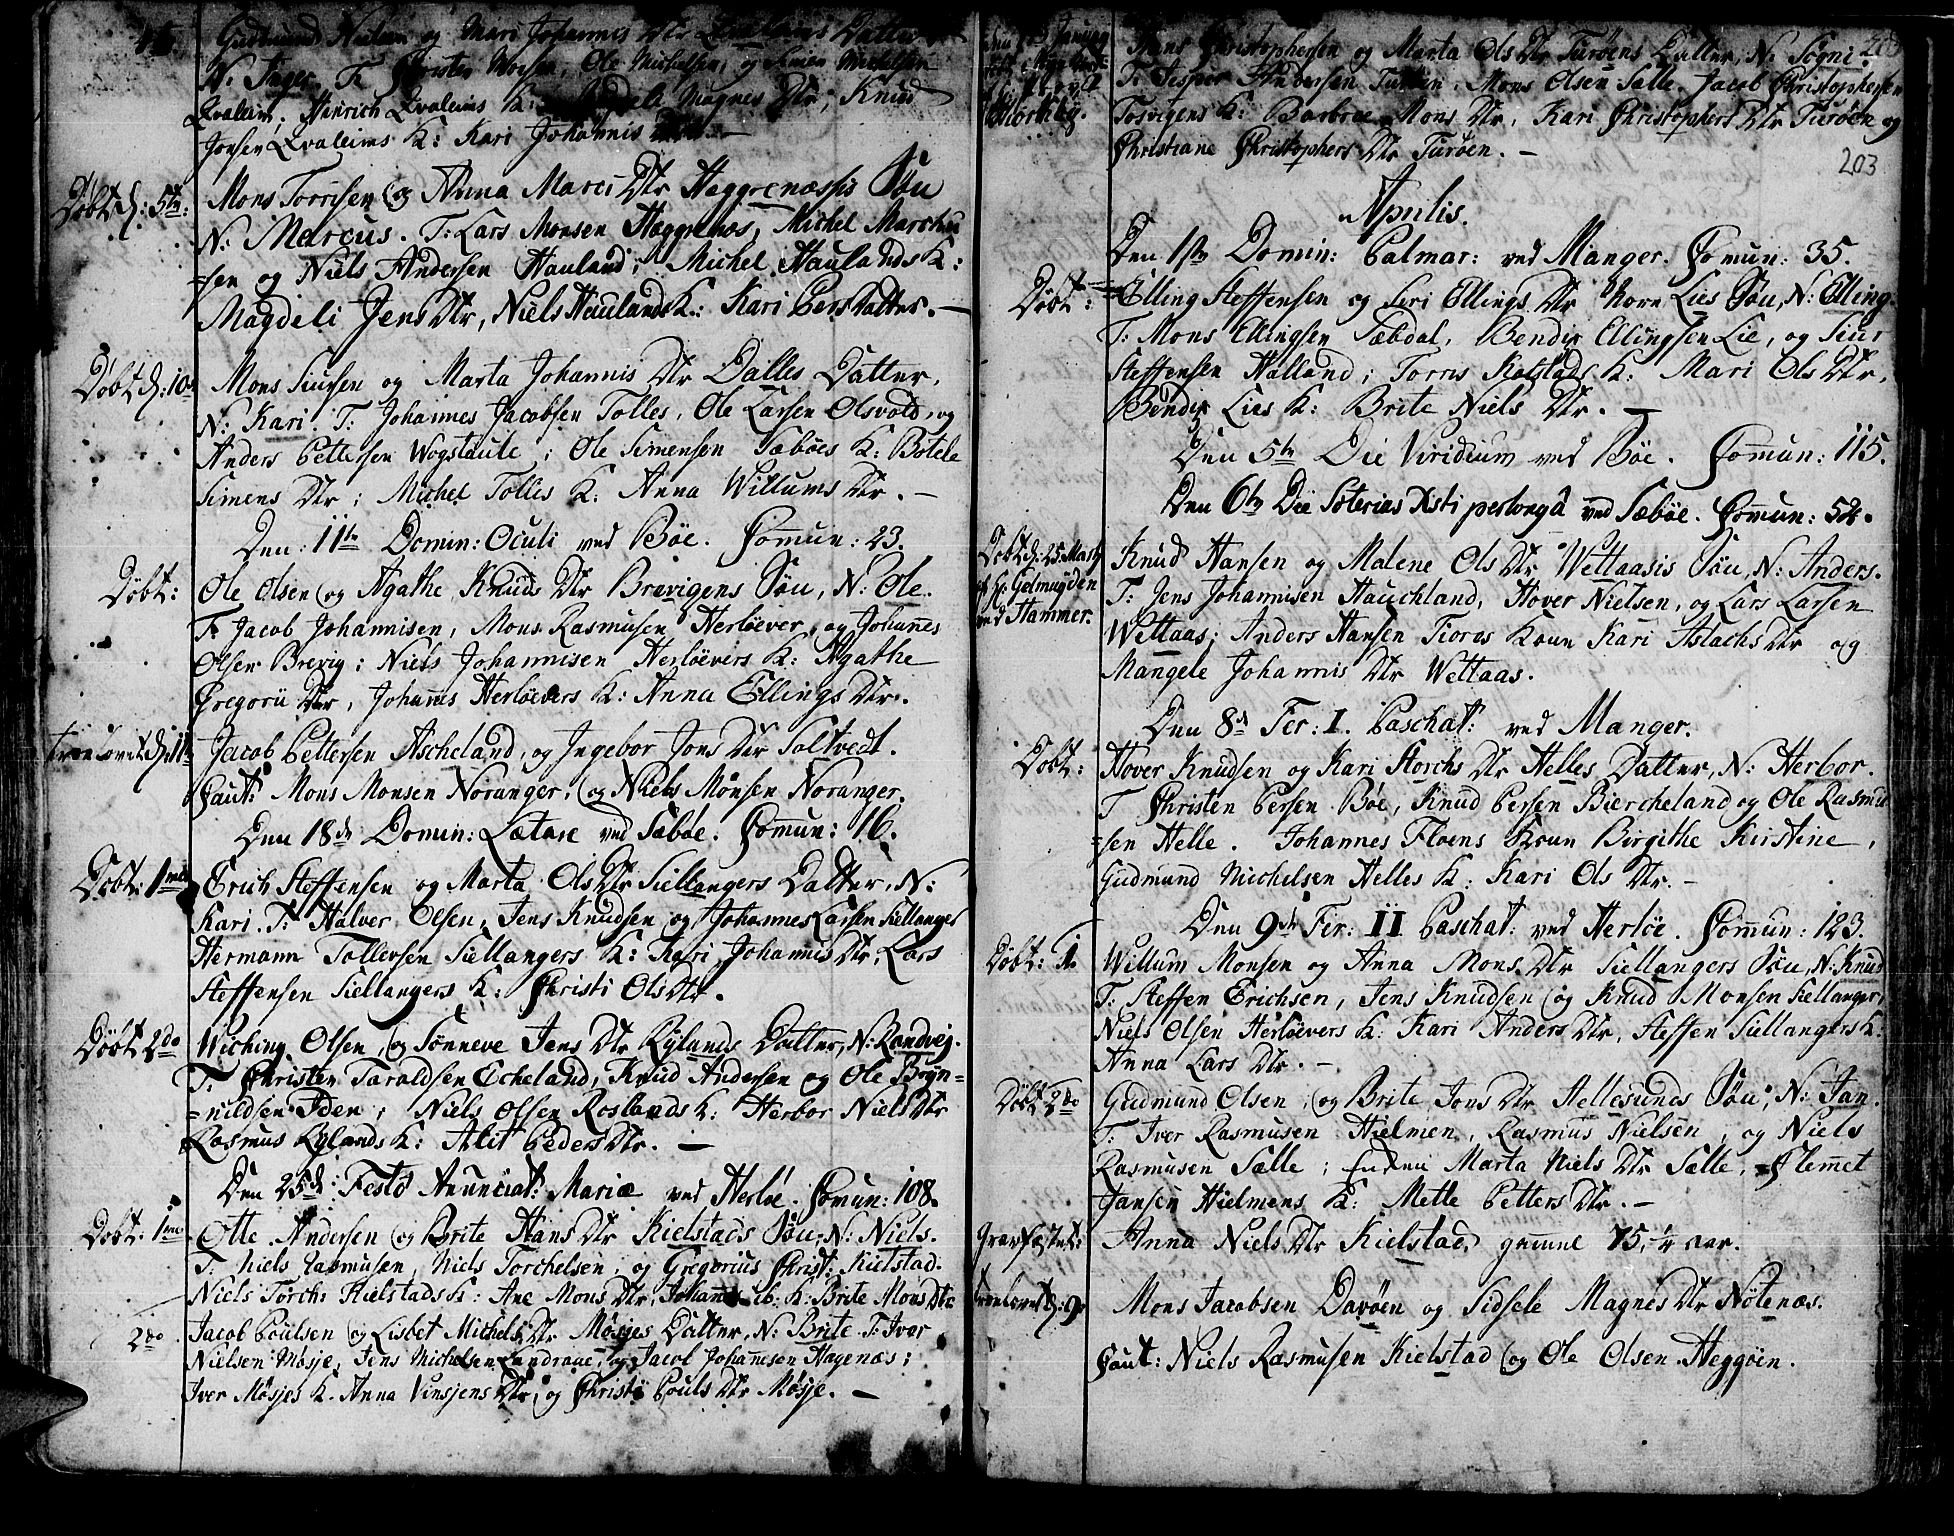 Gudmund Nielsen og Mari Johannis Dtr Qvaleims Datter
N: Inger. T: Torsten Moesen, Ole Michelsen, og Simen Michelsen
Qvaleim; Hinrich Qvaleims K: Magdeli Magnes Dtr, Knud
Jonsen Qvaleims K: Kari Johannis Dtr. —
Døbt d: 5te: Mons Torrisen og Anna Marci Dtr Haggrenæssis Søn
N: Marcus. T: Lars Monsen Haggrenæs, Michel Marchu
=sen og Niels Andersen Hauland; Michel Haulands K:
Magdeli Jens Dtr, Niels Haulands K: Kari Pers Datter. —
Døbt d: 10 Mons Siursen og Marta Johannis Dtr Dalles Datter,
N: Kari. T: Johannes Jacobsen Tolles, Ole Larsen Olsvold, og
Anders Pettersen Wogstaule; Ole Simensen Sæbøes K: Botele
Simens Dtr; Michel Tolles K: Anna Willums Dtr. —
Den: 11te Domin: Oculi ved Bøe. Comun: 23.
Døbt: Ole Olsen og Agathe Knuds Dtr Brevigens Søn, N: Ole.
T: Jacob Johannisen, Mons Rasmusen Herløever, og Johannes
Olsen Brevig; Niels Johannisen Herløevers K: Agathe
Gregorii Dtr, Johannes Herløevers K: Anna Ellings Dtr.
Troelovet d: 11te Jacob Pettersen Ascheland, og Ingebor Jons Dtr Soltvedt.
Caut: Mons Monsen Noranger, og Niels Monsen Noranger.
Den 18de Domin: Lætare ved Sæbøe. Comun: 16.
Døbt: 1mo Erich Steffensen og Marta Ols Dtr Siellangers Datter, N:
Kari. T: Halver Olsen, Jens Knudsen og Johannes Larsen Siellanger
Hermann Tollersen Siellangers K: Kari Johannis Dtr, Lars
Steffensen Siellangers K: Christi Ols Dtr.
Døbt 2do Wiching Olsen, og Sønneve Jens Dtr Rylands Datter, N: Randvig.
T: Christen Taraldsen Echeland, Knud Andersen og Ole Bryn=
=nildsen Iden; Niels Olsen Roslands K: Herbor Niels Dtr
Rasmus Rylands K: Alit Peders Dtr. —
Den 25de: Festo Anunciat: Mariæ ved Herløe. Comun: 108.
Døbt: 1mo Otte Andersen og Brite Hans Dtr Kielstads Søn, N: Niels.
T: Niels Rasmusen, Niels Torchelsen, og Gregorius Christ: Kielstad.
Niels Torch: Kielstads K: Ane Mons Dtr, Johannes ib: K: Brite Mons Dtr
2do Jacob Poulsen og Lisbet Michels Dtr Møsjes Datter, N: Brite. T: Iver
Nielsen Møsje, Jens Michelsen Landraae, og Jacob Johannesen Hagenæs;
Iver Møsjes K. Anna Vinsjens Dtr, og Christi Pouls Dtr Møsje. —
203
Hans Christophersen og Marta Ols Dtr Turøens Datter, N: Sogni.
T: Jesper Andersen Turøen, Mons Olsen Salle. Jacob Christophersen
Tosvigens K: Barbroe Mons Dtr, Kari Christophers Dtr Turøen og
Christiane Christophers Dtr Turøen. —
203
Aprilis.
Den 1ste Domin: Palmar: ved Manger. Comun: 35.
Døbt: Elling Steffensen og Seri Ellings Dtr Lies Søn, N: Elling.
T: Mons Ellingsen Sæbdal, Bendix Ellingsen Lie, og Siur
Steffensen Halland; Torres Kolstads K: Mari Ols Dtr,
Bendix Lies K: Brite Niels Dtr. —
Den 5te Die Viridium ved Bøe. Comun: 115.
Den 6te Die Soterias Xsti perlongâ ved Sæbøe. Comun: 52.
Døbt d: 25 Martii af H: Gelmuyden ved Hammer. Knud Hansen og Malene Ols Dtr Wettaasis Søn, N: Anders.
T: Jens Johannisen Hauchland, Hover Nielsen, og Lars Larsen
Wettaas; Anders Hansen Fioras Kone Kari Aslachs Dtr og
Mangele Johannis Dtr Wettaas.
Den 8de Fer: I. Paschat: ved Manger.
Døbt: Hover Knudsen og Kari Storchs Dtr Helles Datter, N: Herbor.
T: Christen Persen Bøe, Knud Persen Biercheland og Ole Rasmu
=sen Helle. Johannes Floens Kone Birgithe Kirstine,
Gudmund Michelsen Helles K: Kari Ols Dtr. —
Den 9de Fer: II Paschat: ved Herløe. Comun: 123.
Døbt: 1. Willum Monsen og Anna Mons Dtr Siellangers Søn, N: Knud
T: Steffen Erichsen, Jens Knudsen og Knud Monsen Siellanger,
Niels Olsen Herløevers K: Kari Anders Dtr, Steffen Siellangers K:
Anna Lars Dtr. —
Døbt 2do Gudmund Olsen, og Brite Jons Dtr Hellesunds Søn; N: Jan.
T: Iver Rasmusen Hielmen, Rasmus Nielsen, og Niels
Rasmusen Sælle; Marta Niels Dtr Sælle, Clemet
Jansen Hielmens K: Mette Petters Dtr. —
Gravfæstet: Anna Niels Dtr Kielstad, gamel 75 1/4 aar.
Troelovet d: 9. Mons Jacobsen Davøen og Sidsele Magnes Dtr Nøtenæs.
Caut: Niels Rasmusen Kielstad og Ole Olsen Heggøen.